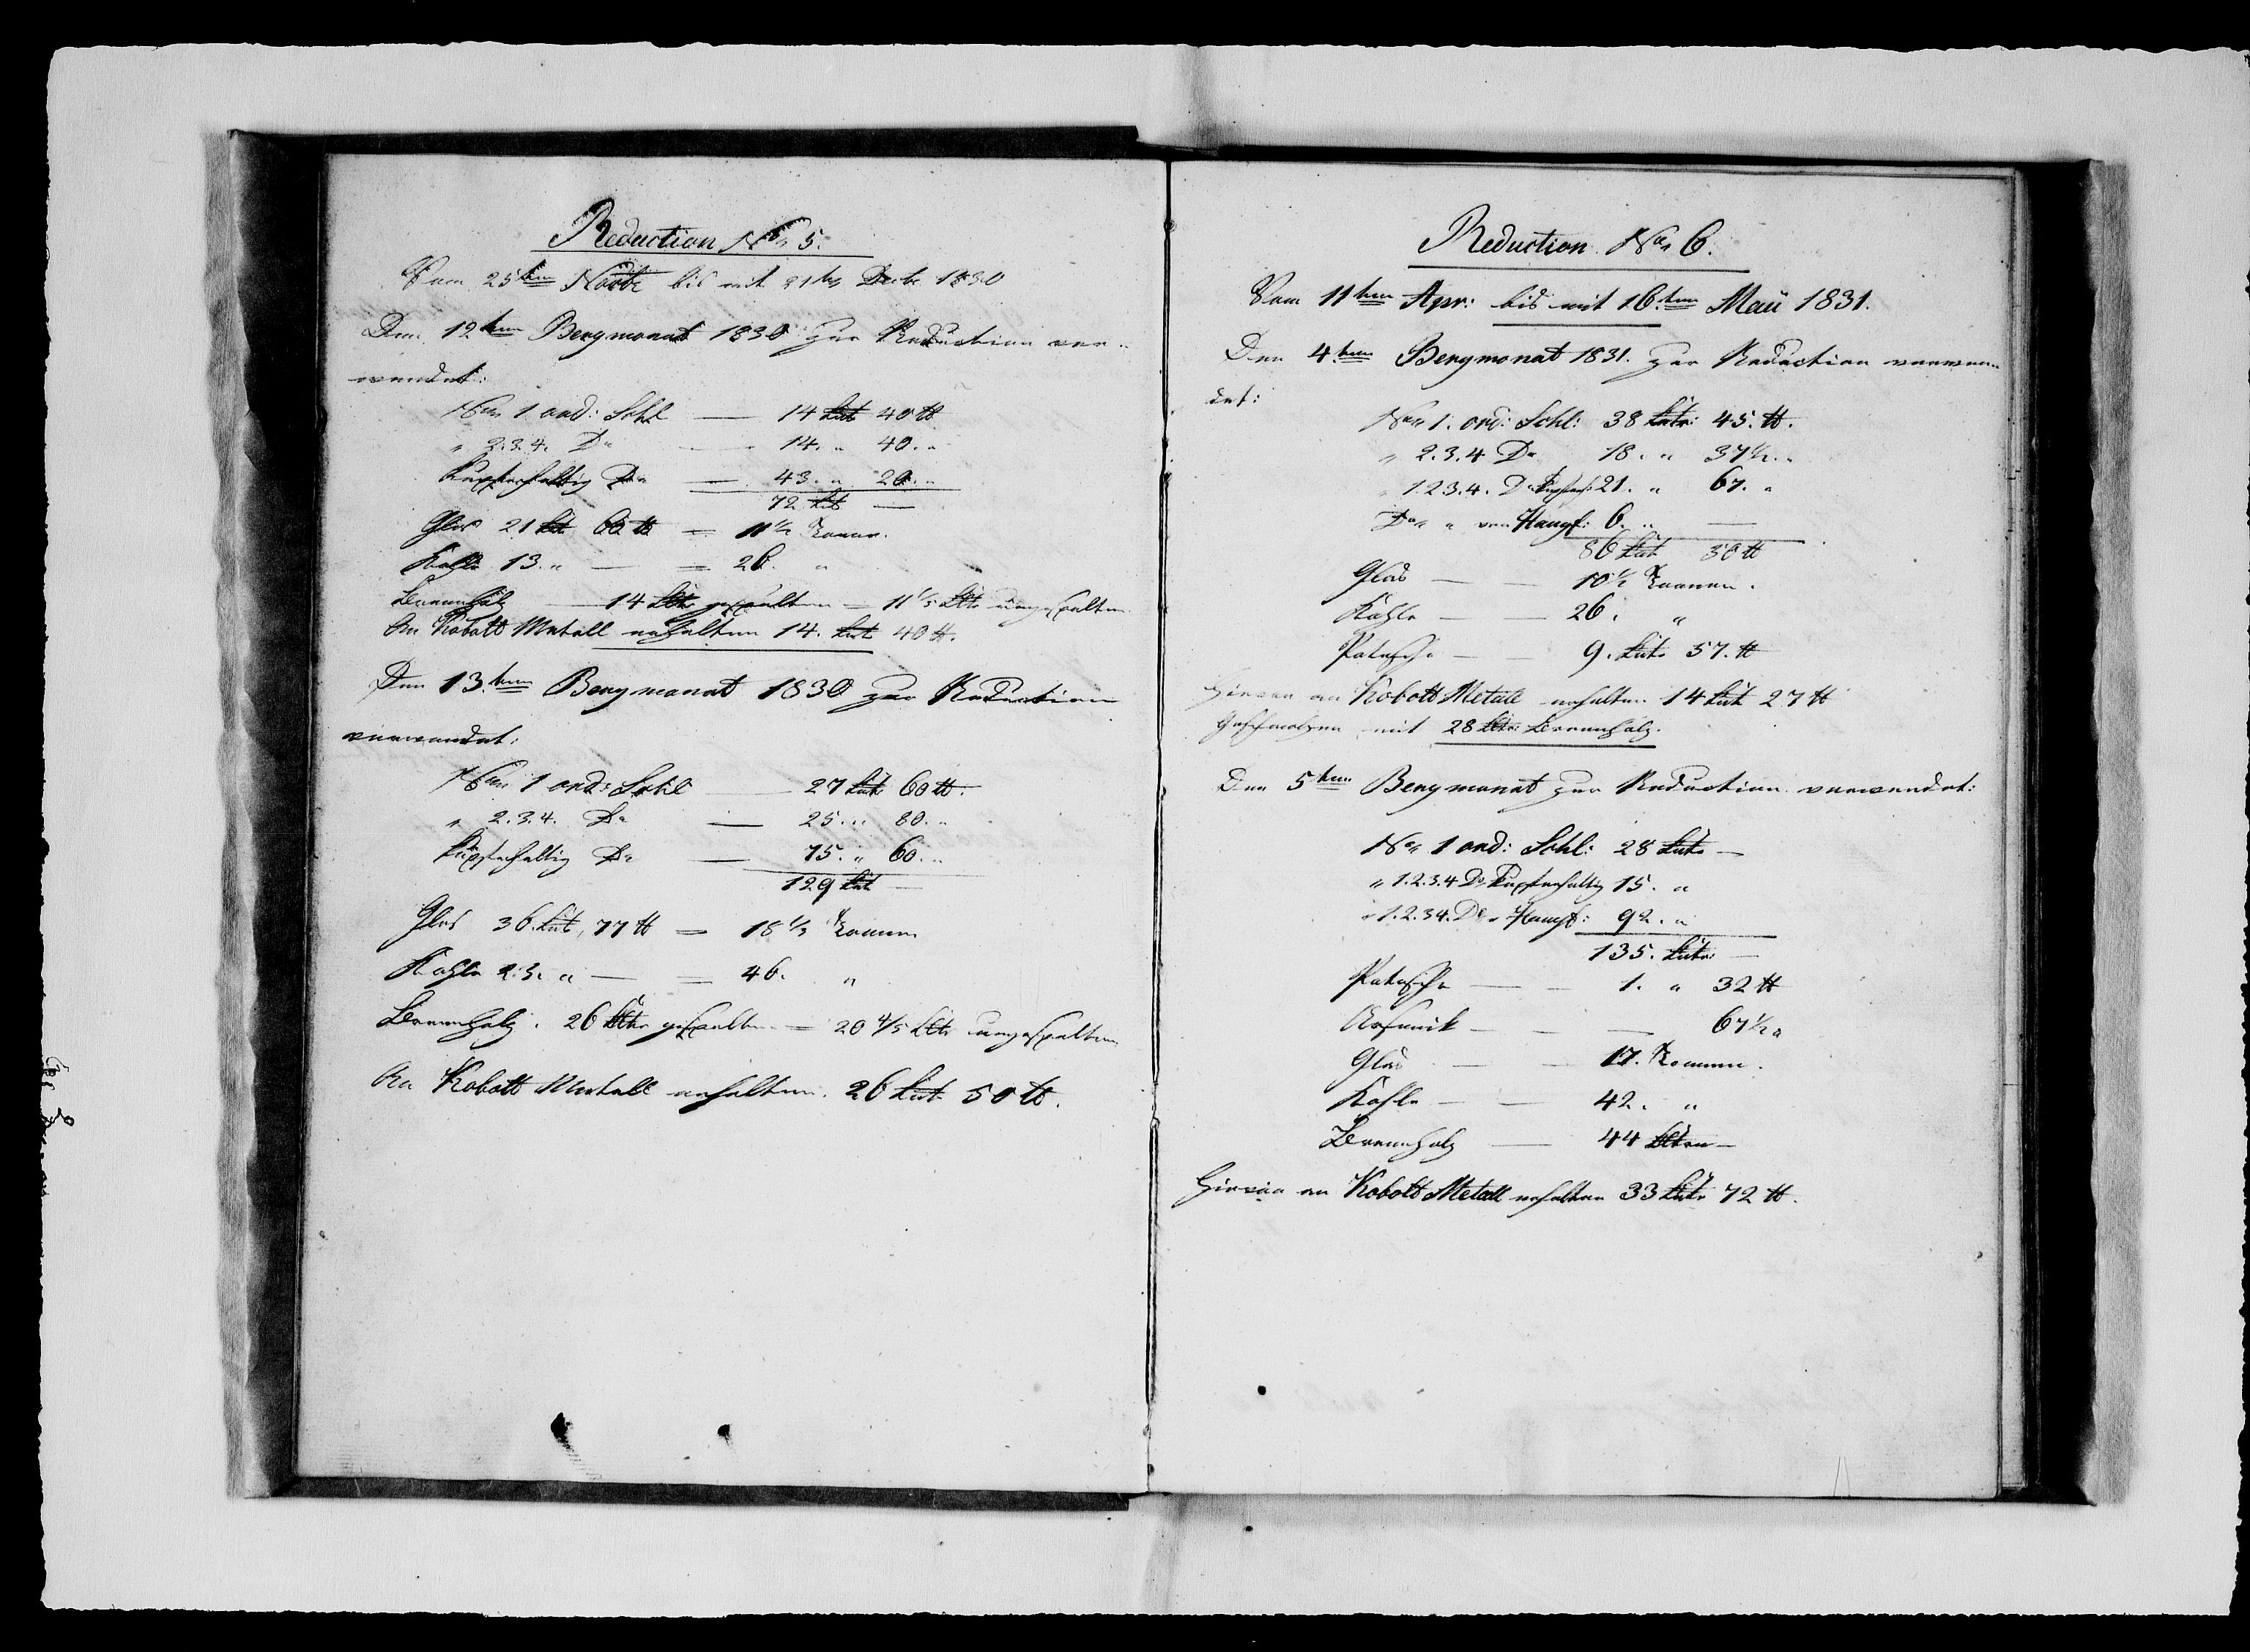 Reduction No 5.
Vom 25ten Novbr bis mit 21ten Decbr 1830
Den 12ten Bergmonat 1830 zur Reduction ver-
wendet:
No 1 ord: Schl — 14 Lüt 40 ℔
„ 2.3.4. Do — 14. „ 40. „
Kupferhaltig Do — 43. „ 20. „
72 Lüt —
Glas 21 Lüt 60 ℔ = 11½ Tonnen.
Kohle 13. „ — = 26. „
Brennholz — 14 gespalten = 11⅕ ungespalten
An Kobolt Metall erhalten 14. Lüt 40 ℔.
Den 13ten Bergmonat 1830 zur Reduction
verwendet:
No 1 ord: Schl — 27 Lüt 60 ℔.
„ 2.3.4. Do — 25. „ 80. „
Kupferhaltig Do — 75. „ 60. „
129 Lüt —
Glas 36. Lüt, 77 ℔ = 18⅓ Tonnen
Kohle 23. „ — = 46. „
Brennholz. 26 gespalten = 20⅘ ungespalten
An Kobolt Metall erhalten. 26 Lüt 50 ℔.
Reduction No 6.
Vom 11ten Apr: bis mit 16ten Maÿ 1831.
Den 4ten Bergmonat 1831. zur Reduction verwen-
det:
No 1. ord: Schl: 38 Lüt: 45. ℔.
„ 2.3.4 Do 18. „ 37½. „
1.2.3.4. Do Kupferh: 21. „ 67. „
Do „ von Hampf: 6. „ —
86 Lüt 50 ℔
Glas — — 10½ Tonnen.
Kohle — — 26. „
Potasche — — 9. Lüt 57. ℔
Hievon an Kobolt Metall erhalten 14 Lüt 27 ℔
Geschmolzen mit 28 Brennholz.
Den 5ten Bergmonat zur Reduction verwendet:
No 1 ord: Schl: 28 Lüt —
„ 1.2.3.4 Do Kupferhaltig 15. „
„ 1.2.3.4. Do „ Hampf: 92. „
135. Lüt: —
Potasche — — 1. „ 32 ℔
Arsenik — — — 67½ „
Glas — — 17. Tonnen.
Kohle — — 42. „
Brennholz — 44 —
Hievon an Kobolt Metall erhalten 33 Lüt 72 ℔.